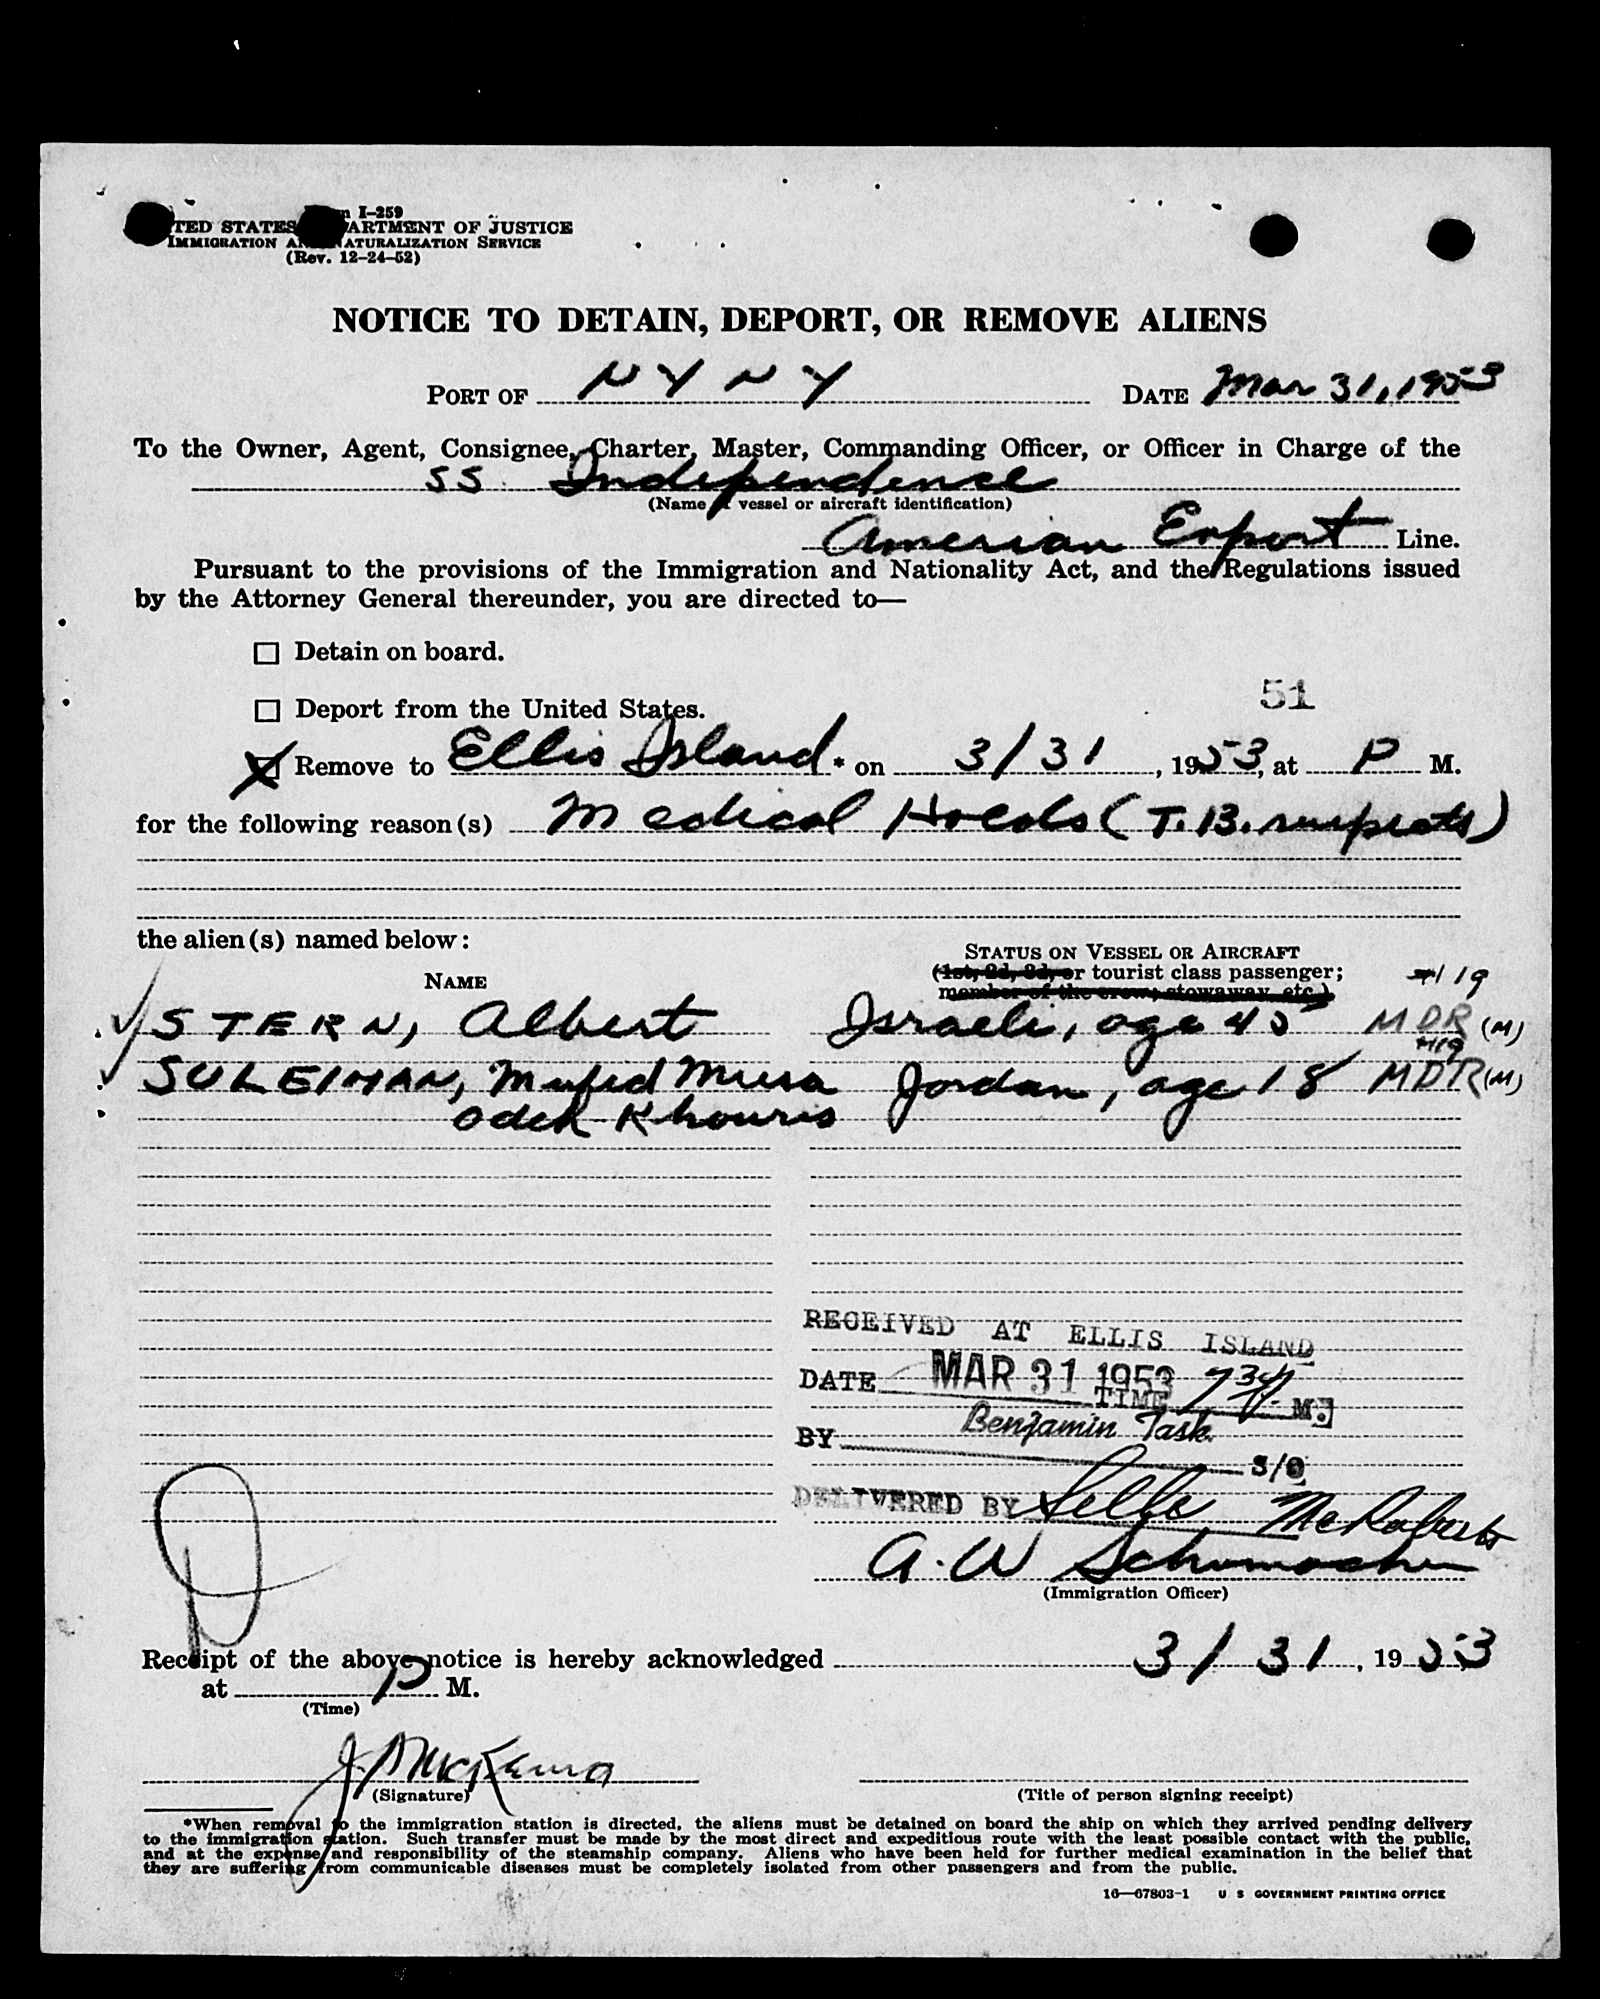 I-259
STATES DEPARTMENT OF JUSTICE
IMMIGRATION AND NATURALIZATION SERVICE
(Rev. 12-24-52)
NOTICE TO DETAIN, DEPORT, OR REMOVE ALIENS
PORT OF N Y N Y DATE Mar 31, 1953
To the Owner, Agent, Consignee, Charter, Master, Commanding Officer, or Officer in Charge of the
SS Independence
(Name or vessel or aircraft identification)
American Export Line.
Pursuant to the provisions of the Immigration and Nationality Act, and the Regulations issued
by the Attorney General thereunder, you are directed to—
Detain on board.
51
Deport from the United States.
Remove to Ellis Island.* on 3/31, 1953, at P M.
for the following reason(s) Medical Holds (T.B. suspects)
the alien(s) named below:
STATUS ON VESSEL OR AIRCRAFT
NAME (1st, 2d, 3d, or tourist class passenger; 19
member of the crew; stowaway, etc.)
STERN, Albert Israeli, age 45 MDR (M)
SULEIMAN, Mufid Musa Jordan, age 18 MDR (M)
Odeh Khouris
RECEIVED AT ELLIS ISLAND
DATE MAR 31 1953 TIME M.
BY Benjamin Task S/O
DELIVERED BY McRoberts
A. W Schumacher
(Immigration Officer)
Receipt of the above notice is hereby acknowledged 3/31, 1953
at P M.
(Time)
J. P. McKenna
(Signature) (Title of person signing receipt)
*When removal to the immigration station is directed, the aliens must be detained on board the ship on which they arrived pending delivery
to the immigration station. Such transfer must be made by the most direct and expeditious route with the least possible contact with the public,
and at the expense and responsibility of the steamship company. Aliens who have been held for further medical examination in the belief that
they are suffering from communicable diseases must be completely isolated from other passengers and from the public.
16—67803-1 U S GOVERNMENT PRINTING OFFICE